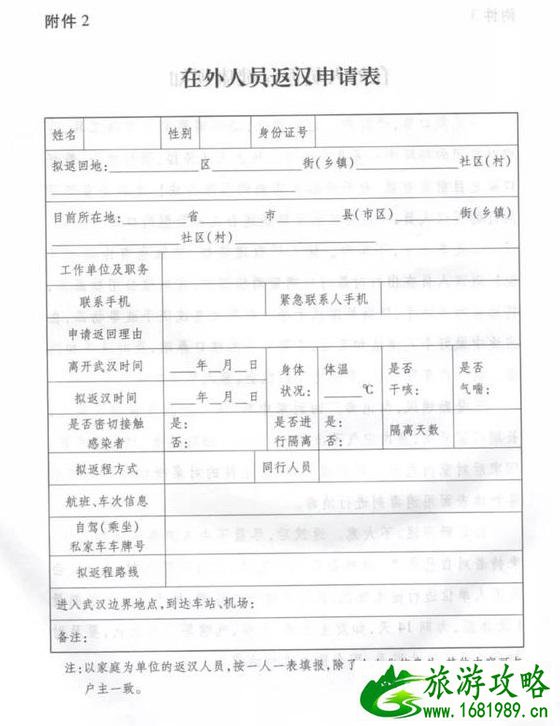 附件 2
在外人员返汉申请表
姓名 性别 身份证号
拟返回地:________区________街(乡镇)________社区(村)________
目前所在地:________省________市________县(市区)________街(乡镇)
________社区(村)________
工作单位及职务
联系手机 紧急联系人手机
申请返回理由
离开武汉时间 ___年__月__日 身体状况: 体温____℃ 是否干咳: 是否气喘:
拟返汉时间 ___年__月__日
是否密切接触感染者 是: 否: 是否进行隔离 是: 否: 隔离天数
拟返程方式 同行人员
航班、车次信息
自驾(乘坐)
私家车车牌号
拟返程路线
进入武汉边界地点,到达车站、机场:
备注:
注:以家庭为单位的返汉人员,按一人一表填报,除了
户主一致。
旅游攻略
www.1681989.cn